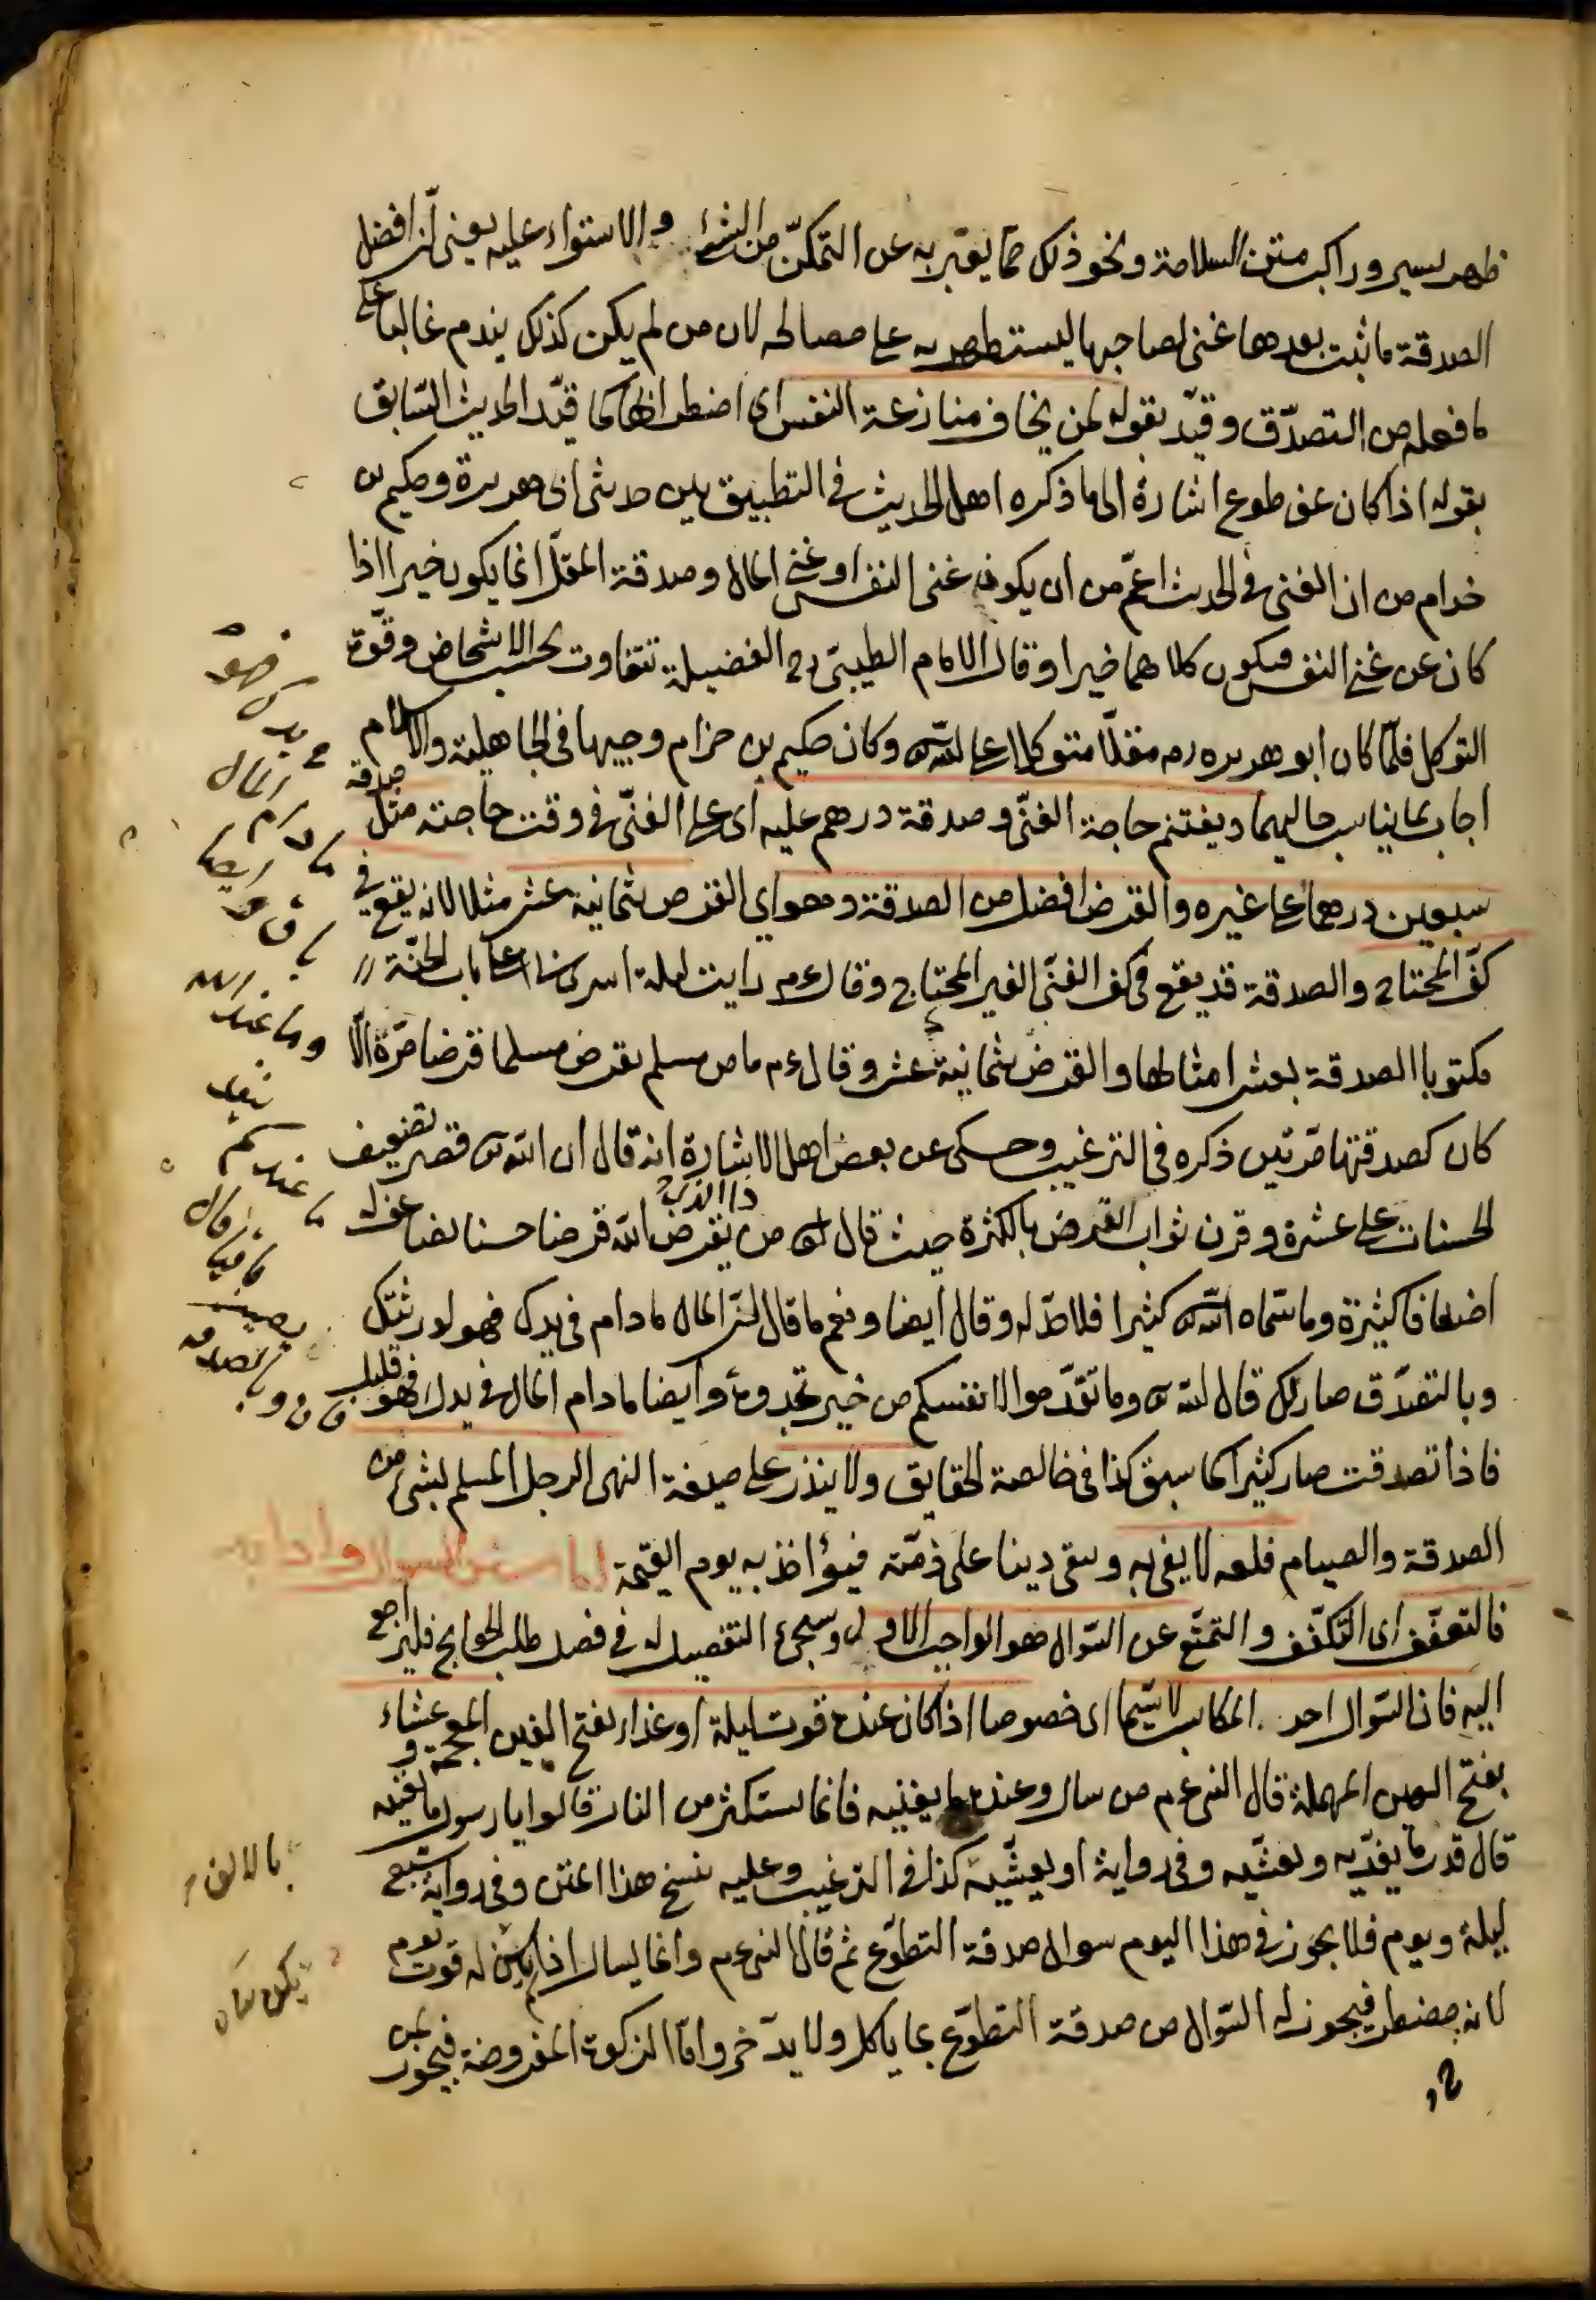 ظهر سير وراكب متن السلامة ونحو ذلك مما يعبر به عن التمكّن من الشئ والاستواء عليه يعنى ان افضل
الصدقة ما ثبت بعدها غنى لصاحبها ليستظهر به على مصالحه لان من لم يكن كذلك يندم غالبا على
ما فعله من التصدّق وقيّد بقوله لمن يخاف منازعة النفس اى اضطرابها كما قيّد الحديث السّابق
بقوله اذا كان عن طوع اشارة الى ما ذكره اهل الحديث فى التطبيق بين حديثى ابى هريرة وحكيم بن
خزام من ان الغنى فى الحديث اعمّ من ان يكون غنى النفس او غنى المال وصدقة المقلّ انما يكون خيرا اذا
كان عن غنى النفس فيكون كلاهما خيرا وقال الامام الطيبىّ رح الفضيلة تتفاوت بحسب الاشخاص وقوّة
التوكل فلمّا كان ابو هريره رم مقلّا متوكلا على الله وكان حكيم بن حزام وجيها فى الجاهلية والاسلام
اجاب بما يناسب حاليهما ويغتنم حاجة الغنىّ وصدقة درهم عليه اى على الغنىّ فى وقت حاجته مثل صدقة
سبعين درهما على غيره والقرض افضل من الصدقة وهو اى القرض بثمانية عشر مثلا لانه يقع فى
كفّ المحتاج والصدقة قد يقع فى كف الغنىّ الغير المحتاج وقال ءم رايت ليلة اسرى بى على باب الجنّة
مكتوبا الصدقة بعشر امثالها والقرض بثمانية عشر وقال ءم ما من مسلم يقرض مسلما قرضا مرّة الّا
كان كصدقتها مرّتين ذكره فى الترغيب وحكى عن بعض اهل الاشارة انه قال ان الله قصر تضعيف
الحسنات على عشرة وقرن ثواب القرض بالكثرة حيث قال الله من ذا الذى يقرض الله قرضا حسنا يضاعفه له
اضعافا كثيرة وما سمّاه الله كثيرا فلا حدّ له وقال ايضا ونعم ما قال لانّ المال ما دام فى يدك فهو لورثتك
وبالتصدّق صار لك قال الله وما تقدّموا لانفسكم من خير تجدوه وايضا ما دام المال فى يدك فهو قليل
فاذا تصدقت صار كثيرا كما سبق كذا فى خالصة الحقايق ولا ينذر على صيغة النهى الرجل المسلم بشئ من
الصدقة والصيام فلعله لا يفى به ويبقى دينا على ذمّته فيؤاخذ به يوم القيمة اما سنن السوال وادابه
فالتعفّف اى التكفّف والتمنّع عن السّوال هو الواجب الاول وسيجئ التفصيل له فى فصل طلب الحوايج فليراجع
اليه فان السّوال احد المكاسب لا سيّما اى خصوصا اذا كان عنده قوت ليلة او غداء بفتح الغين المعجمة وعشاء
بفتح العين المهملة قال النبى ءم من سال وعنده ما يغنيه فانما يستكثر من النار قالوا يا رسول ما يغنيه
قال قدر ما يغدّيه ويعشّيه وفى رواية او يعشّيه كذا فى الترغيب وعليه نسخ هذا المتن وفى رواية شبع
ليلة ويوم فلا يجوز فى هذا اليوم سوال صدقة التطوّع ثم قال النبى ءم وانما يسال اذا لم يكن له قوت يوم
لانه مضطر فيجوز له السّوال من صدقة التطوّع بما ياكل ولا يدّخر وامّا الزكوة المفروضة فيجوز لمن
وما عند الله
ينفد
ما عندكم